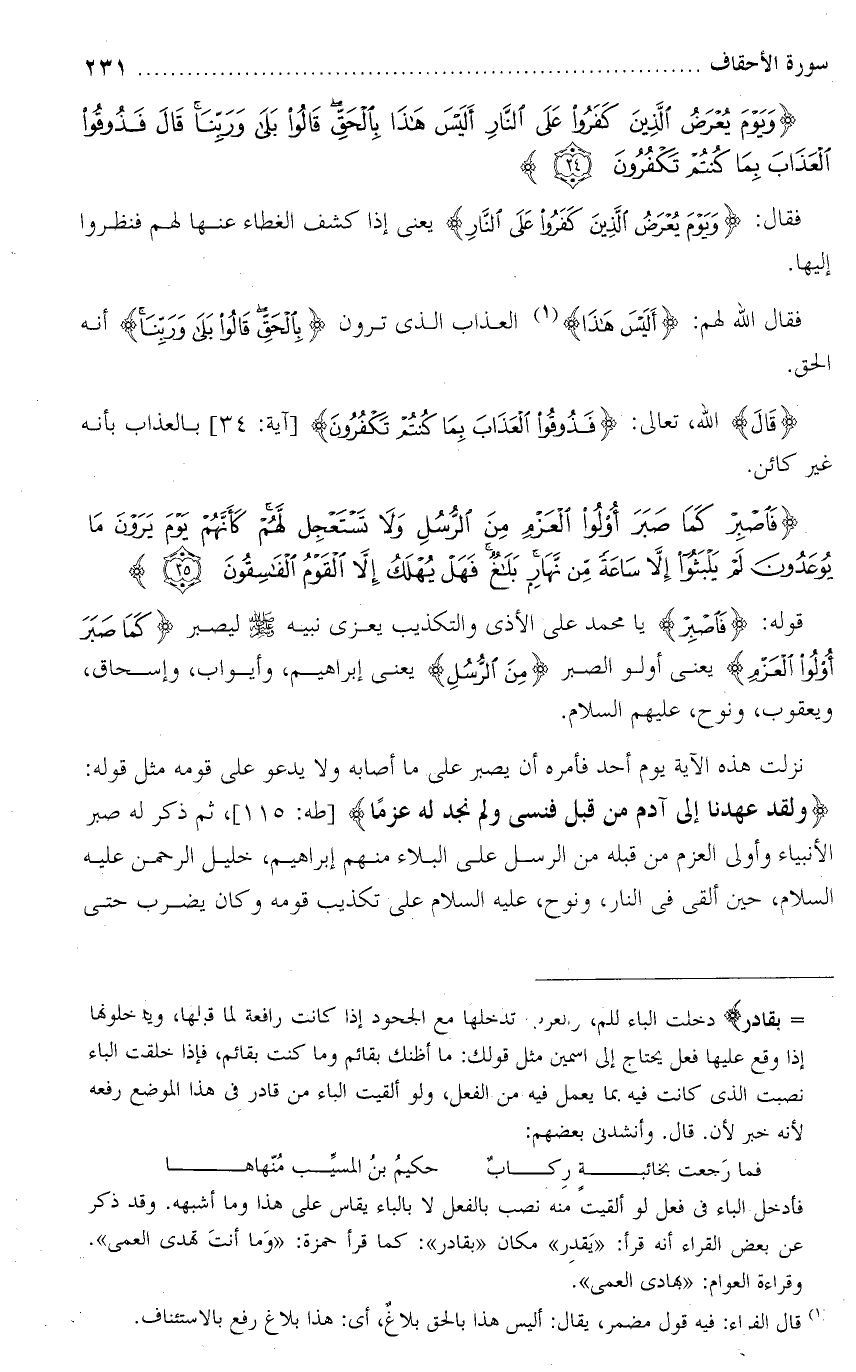 سورة الأحقاف ........................................................................ ٢٣١
﴿وَيَوْمَ يُعْرَضُ ٱلَّذِينَ كَفَرُوا۟ عَلَى ٱلنَّارِ أَلَيْسَ هَٰذَا بِٱلْحَقِّ ۖ قَالُوا۟ بَلَىٰ وَرَبِّنَا ۚ قَالَ فَذُوقُوا۟
ٱلْعَذَابَ بِمَا كُنتُمْ تَكْفُرُونَ ٣٤ ﴾
فقال: ﴿وَيَوْمَ يُعْرَضُ ٱلَّذِينَ كَفَرُوا۟ عَلَى ٱلنَّارِ﴾ يعنى إذا كشف الغطاء عنها لهم فنظروا
إليها.
فقال الله لهم: ﴿أَلَيْسَ هَٰذَا﴾(١) العذاب الذى ترون ﴿بِٱلْحَقِّ ۖ قَالُوا۟ بَلَىٰ وَرَبِّنَا ۚ﴾ أنه
الحق.
﴿قَالَ﴾ الله، تعالى: ﴿فَذُوقُوا۟ ٱلْعَذَابَ بِمَا كُنتُمْ تَكْفُرُونَ﴾ [آية: ٣٤] بالعذاب بأنه
غير كائن.
﴿فَٱصْبِرْ كَمَا صَبَرَ أُو۟لُوا۟ ٱلْعَزْمِ مِنَ ٱلرُّسُلِ وَلَا تَسْتَعْجِل لَّهُمْ ۚ كَأَنَّهُمْ يَوْمَ يَرَوْنَ مَا
يُوعَدُونَ لَمْ يَلْبَثُوٓا۟ إِلَّا سَاعَةً مِّن نَّهَارٍۭ ۚ بَلَٰغٌ ۚ فَهَلْ يُهْلَكُ إِلَّا ٱلْقَوْمُ ٱلْفَٰسِقُونَ ٣٥ ﴾
قوله: ﴿فَٱصْبِرْ﴾ يا محمد على الأذى والتكذيب يعزى نبيه ﷺ ليصبر ﴿كَمَا صَبَرَ
أُو۟لُوا۟ ٱلْعَزْمِ﴾ يعنى أولو الصبر ﴿مِنَ ٱلرُّسُلِ﴾ يعنى إبراهيم، وأيواب، وإسحاق،
ويعقوب، ونوح، عليهم السلام.
نزلت هذه الآية يوم أحد فأمره أن يصبر على ما أصابه ولا يدعو على قومه مثل قوله:
﴿ولقد عهدنا إلى آدم من قبل فنسى ولم نجد له عزمًا﴾ [طه: ١١٥]، ثم ذكر له صبر
الأنبياء وأولى العزم من قبله من الرسل على البلاء منهم إبراهيم، خليل الرحمن عليه
السلام، حين ألقى فى النار، ونوح، عليه السلام على تكذيب قومه وكان يضرب حتى
= بقادر﴾ دخلت الباء للم، تدخلها مع الجحود إذا كانت رافعة لما قبلها،
إذا وقع عليها فعل يحتاج إلى اسمين مثل قولك: ما أظنك بقائم وما كنت بقائم، فإذا خلقت الباء
نصبت الذى كانت فيه بما يعمل فيه من الفعل، ولو ألقيت الباء من قادر فى هذا الموضع رفعه
لأنه خبر لأن. قال. وأنشدنى بعضهم:
فما رَجعت بخائبةٍ رِكابٌ حكيمُ بنُ المسيِّب مُنْتهاها
فأدخل الباء فى فعل لو ألقيت منه نصب بالفعل لا بالباء يقاس على هذا وما أشبهه. وقد ذكر
عن بعض القراء أنه قرأ: «يَقدِر» مكان «بقادر»: كما قرأ حمزة: «وَما أنتَ تهدى العمى».
وقراءة العوام: «بهادى العمى».
(١) قال الفراء: فيه قول مضمر، يقال: أليس هذا بالحق بلاغٌ، أى: هذا بلاغ رفع بالاستئناف.